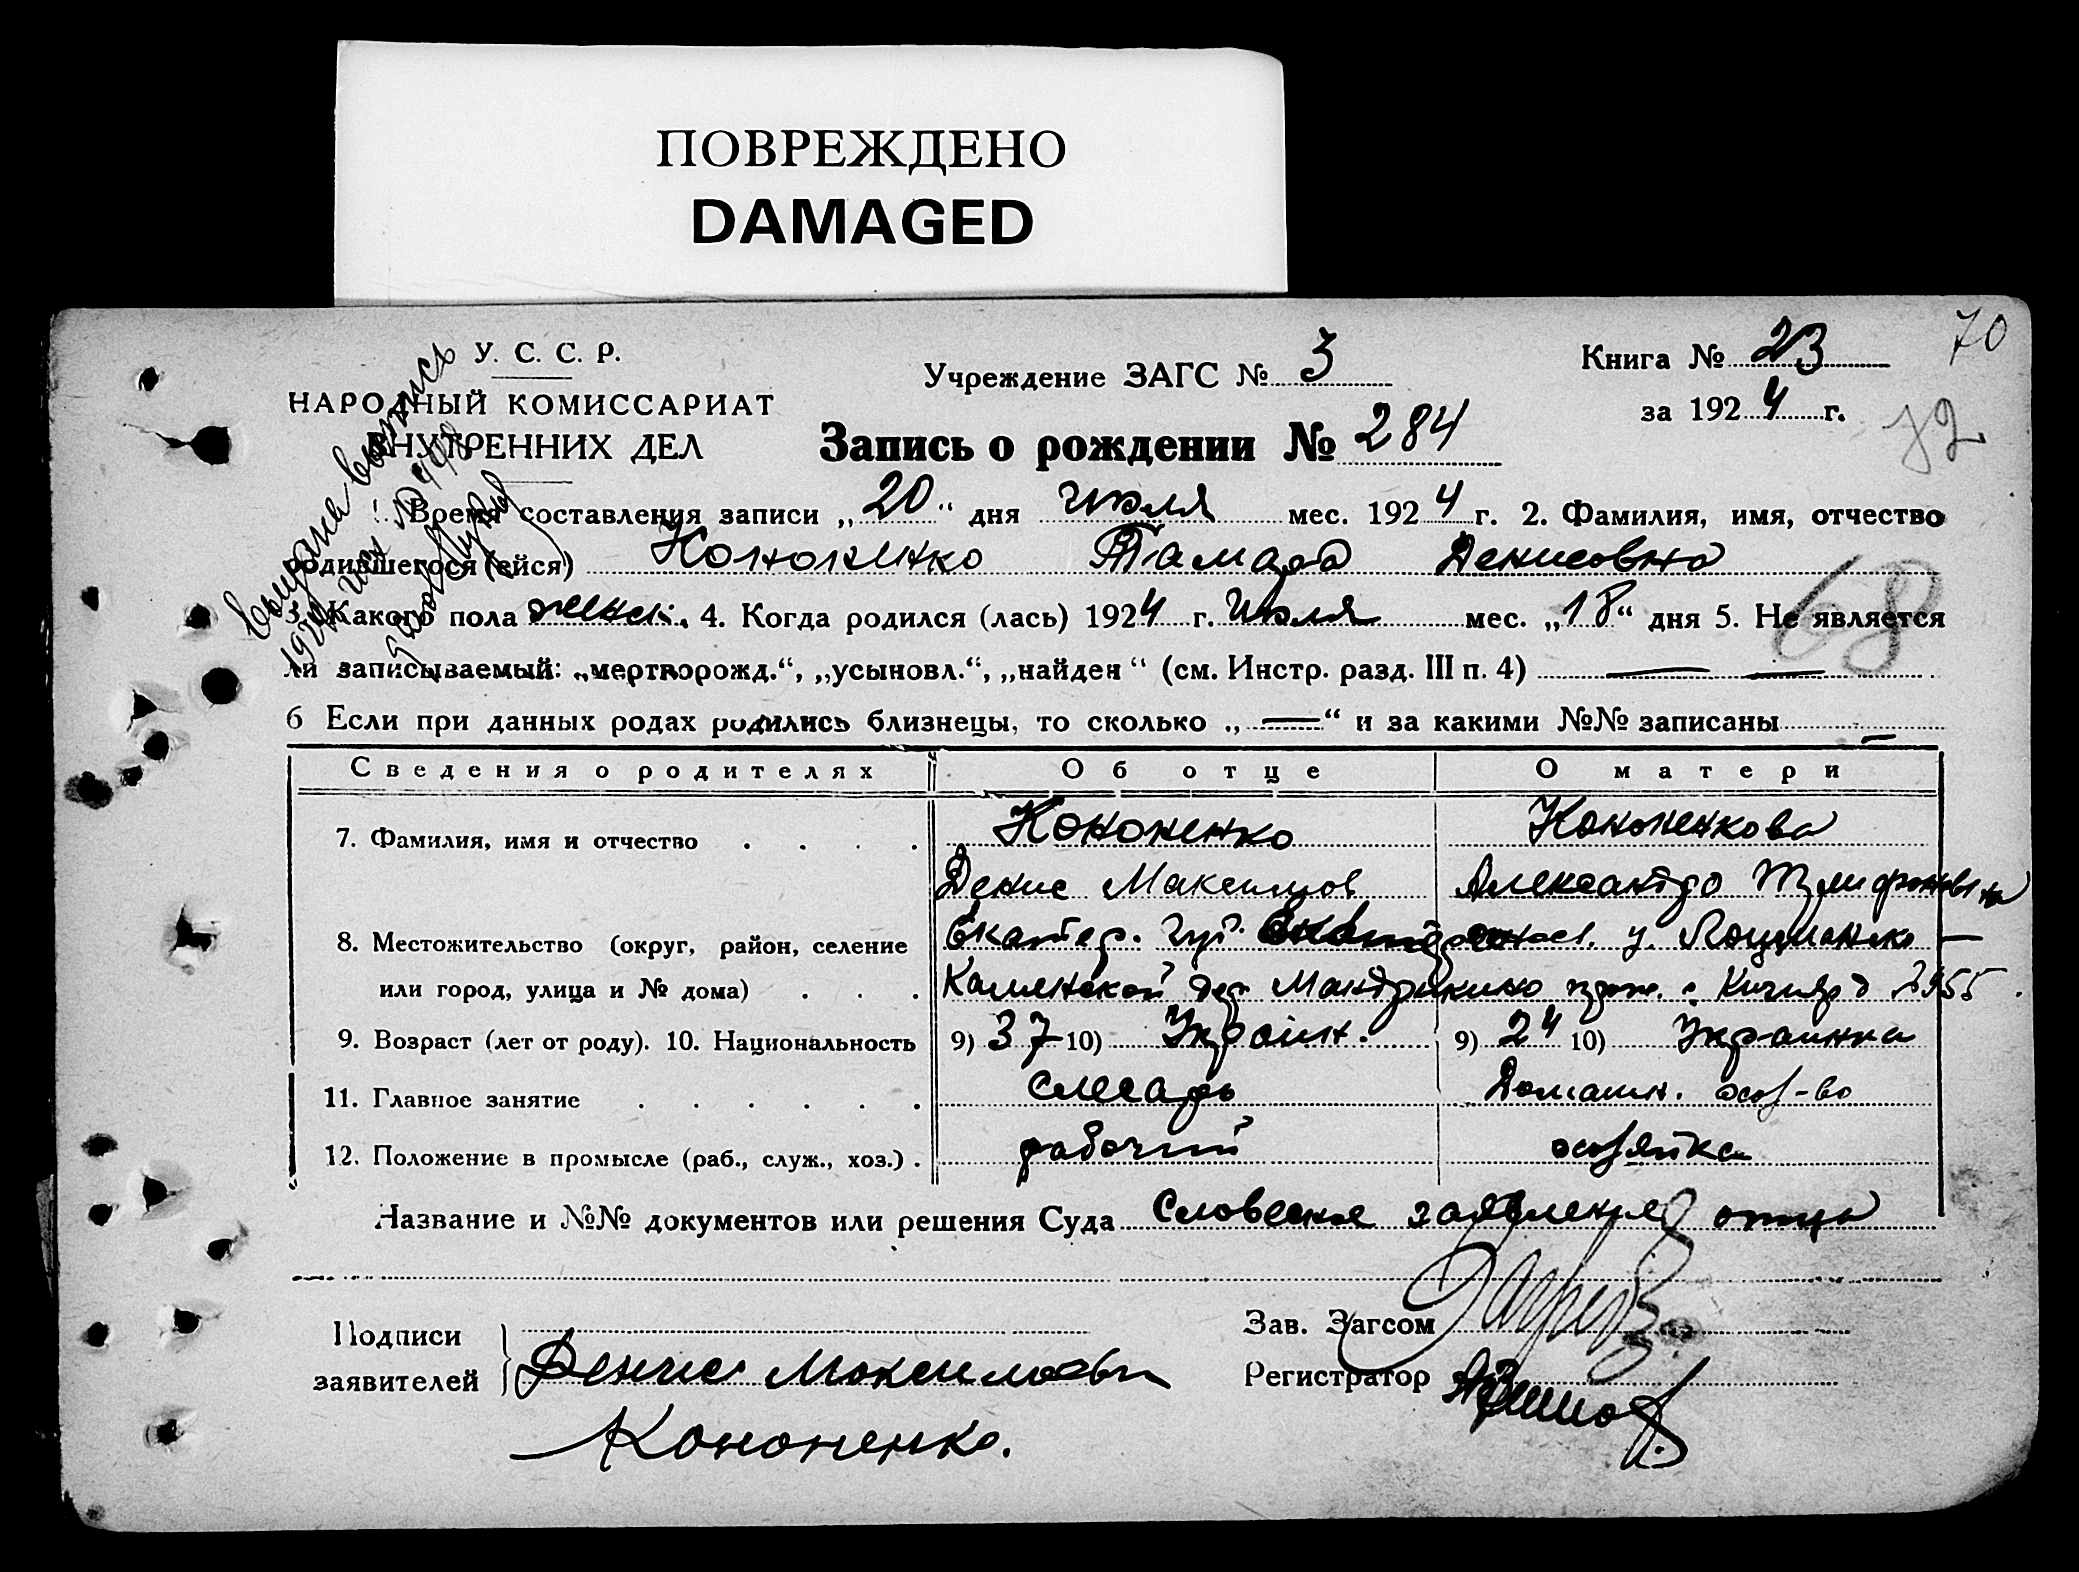 ПОВРЕЖДЕНО
DAMAGED
70
У. С. С. Р.
НАРОДНЫЙ КОМИССАРИАТ
ВНУТРЕННИХ ДЕЛ
Учреждение ЗАГС № 3
Книга № 23
за 1924 г.
72
Запись о рождении № 284
Выдана выпись
Время составления записи „20“ дня июля мес. 1924 г. 2. Фамилия, имя, отчество
родившегося (ейся) Кононенко Тамара Денисовна
68
3. Какого пола женск. 4. Когда родился (лась) 1924 г. Июля мес. „18“ дня 5. Не является
ли записываемый: „мертворожд.“, „усыновл.“, „найден“ (см. Инстр. разд. III п. 4) — —
6 Если при данных родах родились близнецы, то сколько „—“ и за какими №№ записаны —
Сведения о родителях Об отце О матери
7. Фамилия, имя и отчество Кононенко Кононенкова
Денис Максимов Александра
8. Местожительство (округ, район, селение Екатер. губ.
или город, улица и № дома) Каменской дер Мандрыкино
9. Возраст (лет от роду). 10. Национальность 9) 37 10) Украин. 9) 24 10) Украинка
11. Главное занятие слесарь Домашн. хоз-во
12. Положение в промысле (раб., служ., хоз.) рабочий хозяйка
Название и №№ документов или решения Суда Словесное заявление отца
Подписи
заявителей
Денис Максимовъ
Кононенко.
Зав. Загсом
Регистратор